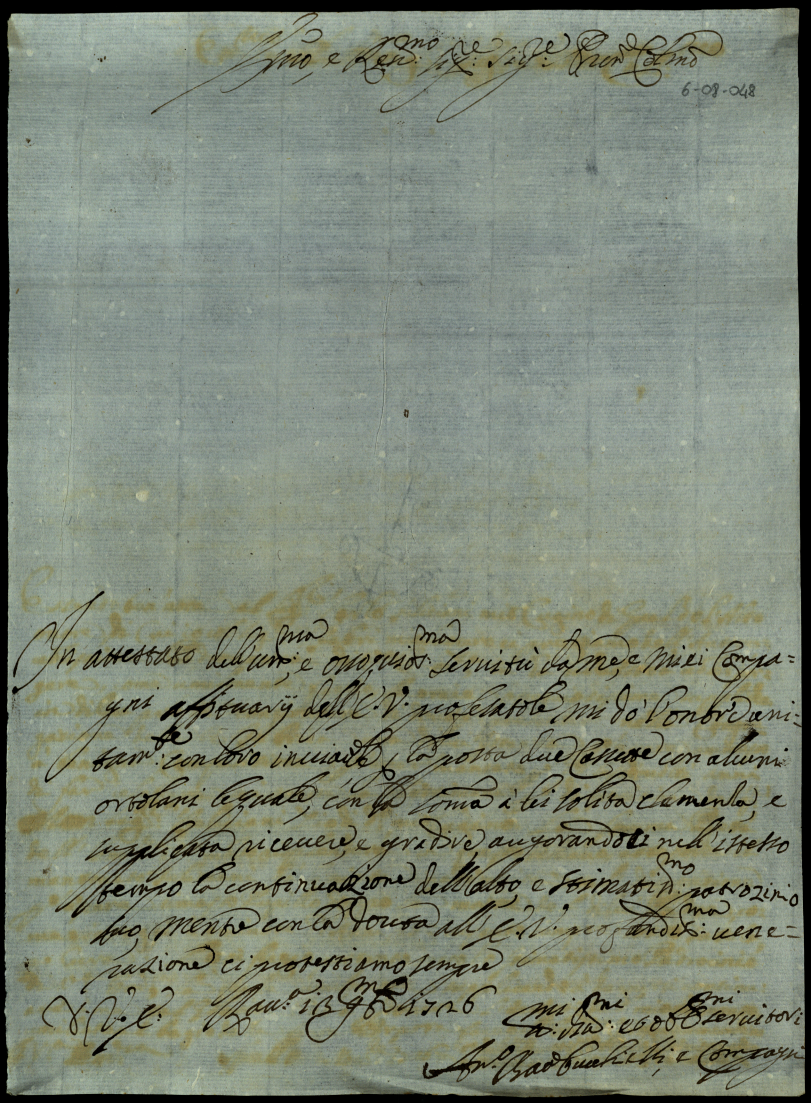 Em̃o, e Reu:mo Sig:re Sig:re Pron Colmo
6-08-048
In attestato dell'um:ma, e ossequios:ma seruitù da me, e miei Compa=
gni affittuarij dell'E. V. professatole mi dò l'onore uni=
tam:te con loro inuiarle la posta due Cassette con alcuni
ortolani le quale, con la somã à lei solita clemenza, e
supplicata riceuere, e gradire augorandoci nell'istesso
tempo la continuazione dell'alto, e stimatis:mo patrozinio
suo, mentre con la douuta all'E. V. profondis:ma uene=
razione ci protestiamo sempre
D: V. E: Rau:a 13 9bre 1726 mi mi mi seruitori
Compagni